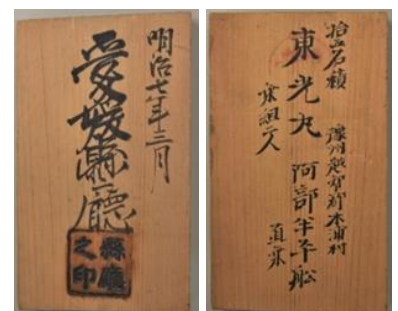 明治七年三月
愛媛縣廳
縣廳之印
拾五石積
豫州越智郡木浦村
東光丸 阿部半平舩
乗組二人
直乗